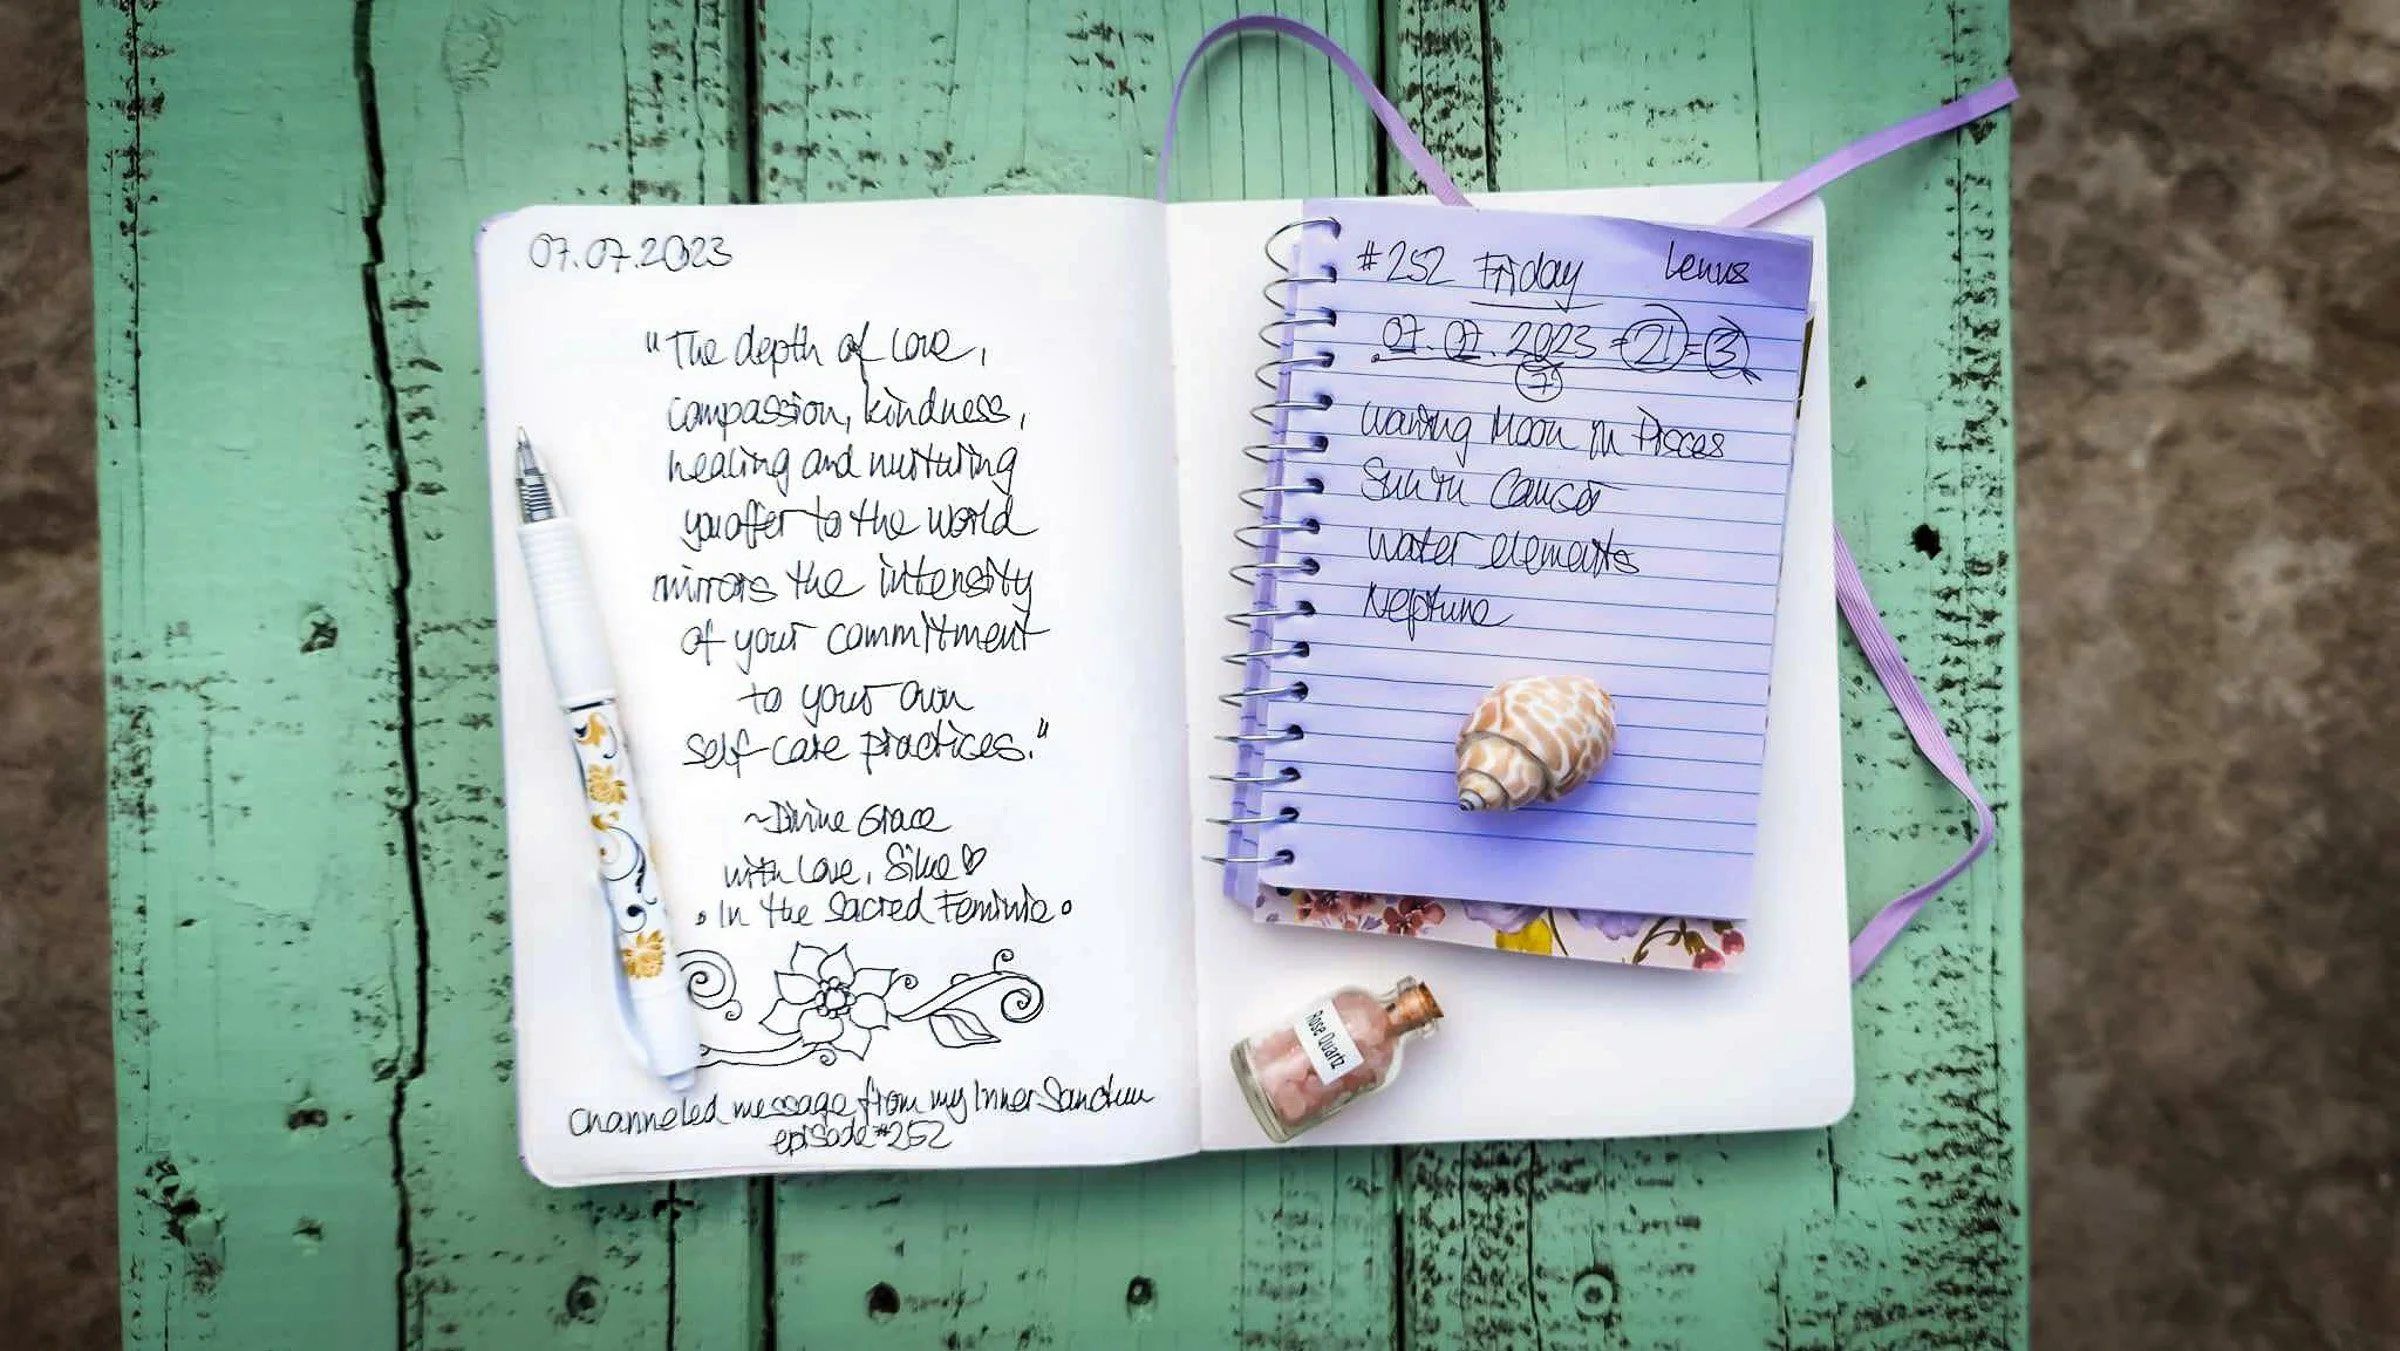 07.07.2023
"The depth of love,
compassion, kindness,
healing and nurturing
you offer to the world
mirrors the intensity
of your commitment
to your own
self-care practices."
~Divine Grace
with Love, Silke♡
• In the Sacred Feminine •
Channeled message from my Inner Sanctum
episode #252
#252 Friday Venus
07.07.2023 = 21 = 3
7
Waning Moon in Pisces
Sun in Cancer
Water elements
Neptune
Rose Quartz